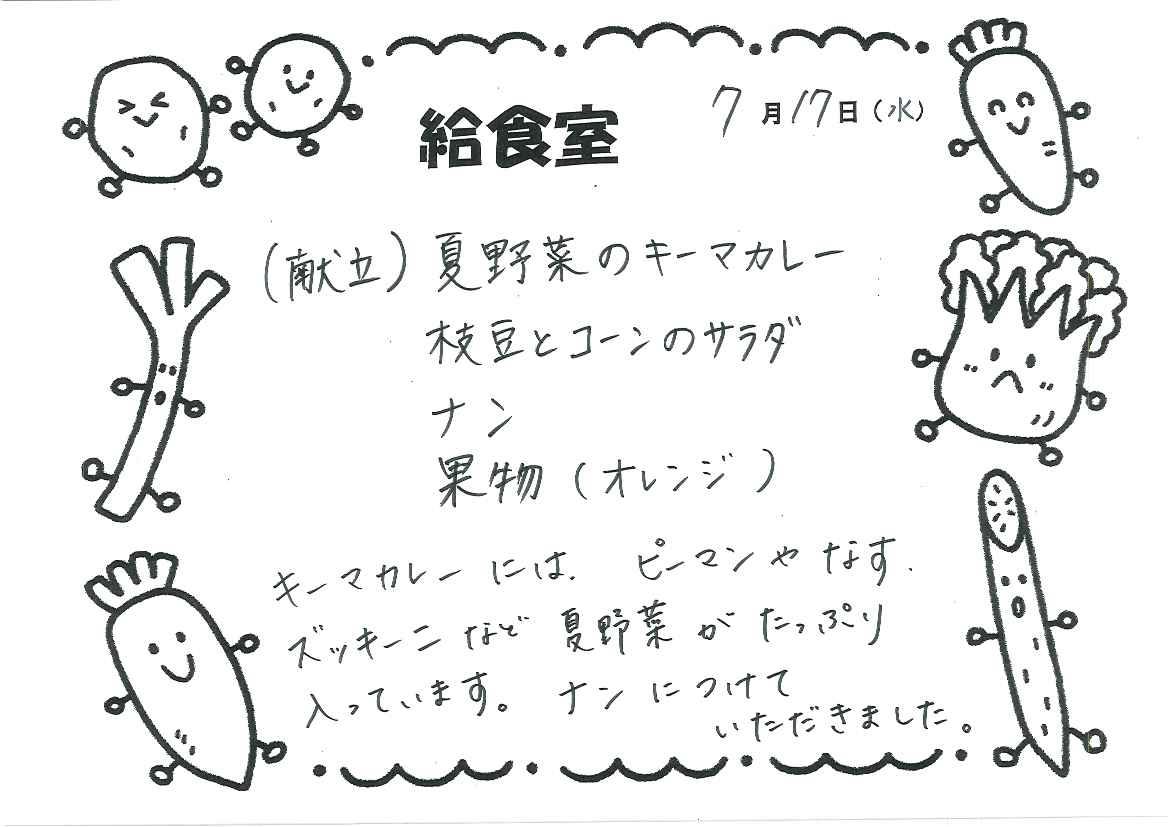 給食室
7月17日(水)
(献立)夏野菜のキーマカレー
枝豆とコーンのサラダ
ナン
果物(オレンジ)
キーマカレーには、ピーマンやなす、
ズッキーニなど夏野菜がたっぷり
入っています。ナンにつけて
いただきました。